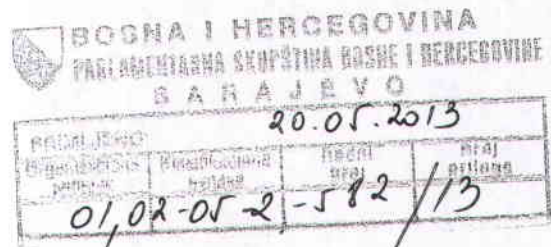 BOSNA I HERCEGOVINA
PARLAMENTARNA SKUPŠTINA BOSNE I HERCEGOVINE
SARAJEVO
20.05.2013
PRIMLJENO:
Organizaciona jedinica
Klasifikaciona oznaka
Redni broj
Broj priloga
01,02-05-2-582/13